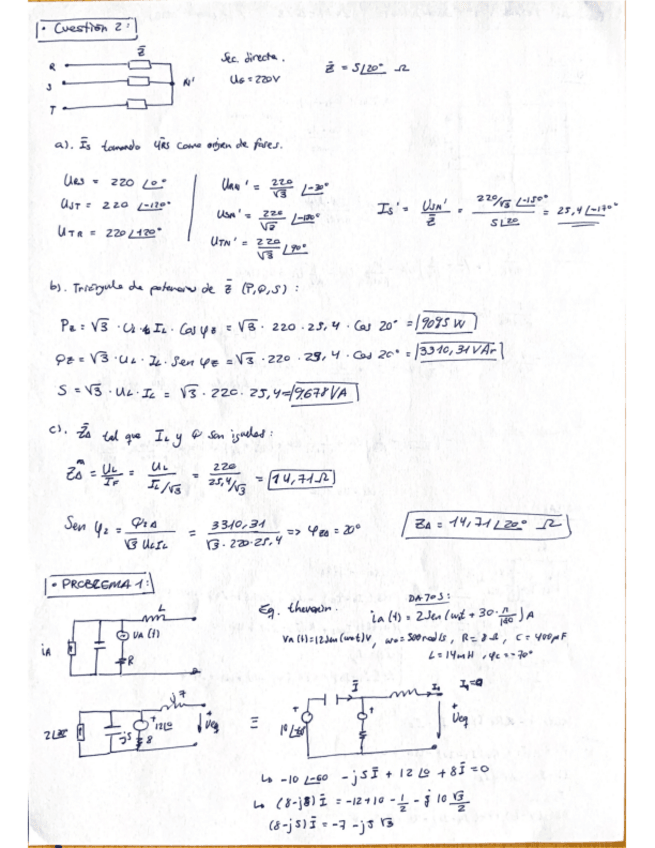 • Cuestión 2:
Z̄
R
S
T
N'
Sec. directa.
UG = 220V
Z̄ = 5∠20° Ω
a). ĪS tomando URS como origen de fases.
URS = 220 ∠0°
UST = 220 ∠-120°
UTR = 220 ∠120°
URN' = 220/√3 ∠-30°
USN' = 220/√3 ∠-150°
UTN' = 220/√3 ∠90°
IS' = USN'/Z̄ = 220/√3 ∠-150° / 5∠20 = 25,4 ∠-170°
b). Triángulo de potencias de Z̄ (P,Q,S):
PZ = √3 · UL · IL · Cos φZ = √3 · 220 · 25,4 · Cos 20° = 9095 W
QZ = √3 · UL · IL · Sen φZ = √3 · 220 · 25,4 · Cos 20° = 3310,31 VAr
S = √3 · UL · IL = √3 · 220 · 25,4 = 9.678 VA
c). Z̄Δ tal que IL y Q sen iguales:
ZΔ = UL/IF = UL / IL/√3 = 220 / 25,4/√3 = 14,71 Ω
Sen φZ = QZΔ / √3 UL IL = 3310,31 / √3 · 220 · 25,4 => φZΔ = 20°
ZΔ = 14,71 ∠20° Ω
• PROBLEMA 1:
Eq. thevenin.
DATOS:
iA (t) = 2 Sen (wt + 30 · π/180) A
VA (t) = 12 Sen (wot) V, wo = 500 rad/s, R = 8 Ω, C = 400 μF
L = 14 mH, φc = -70°
L
iA
VA (t)
R
7
-j5
12∠0
8
Veq
≡
Ī
10∠-60
Veq
↳ -10 ∠-60 - j5 Ī + 12 ∠0 + 8 Ī = 0
↳ (8-j5) Ī = -12 + 10 · 1/2 - j 10 √3/2
(8-j5) Ī = -7 - j5 √3